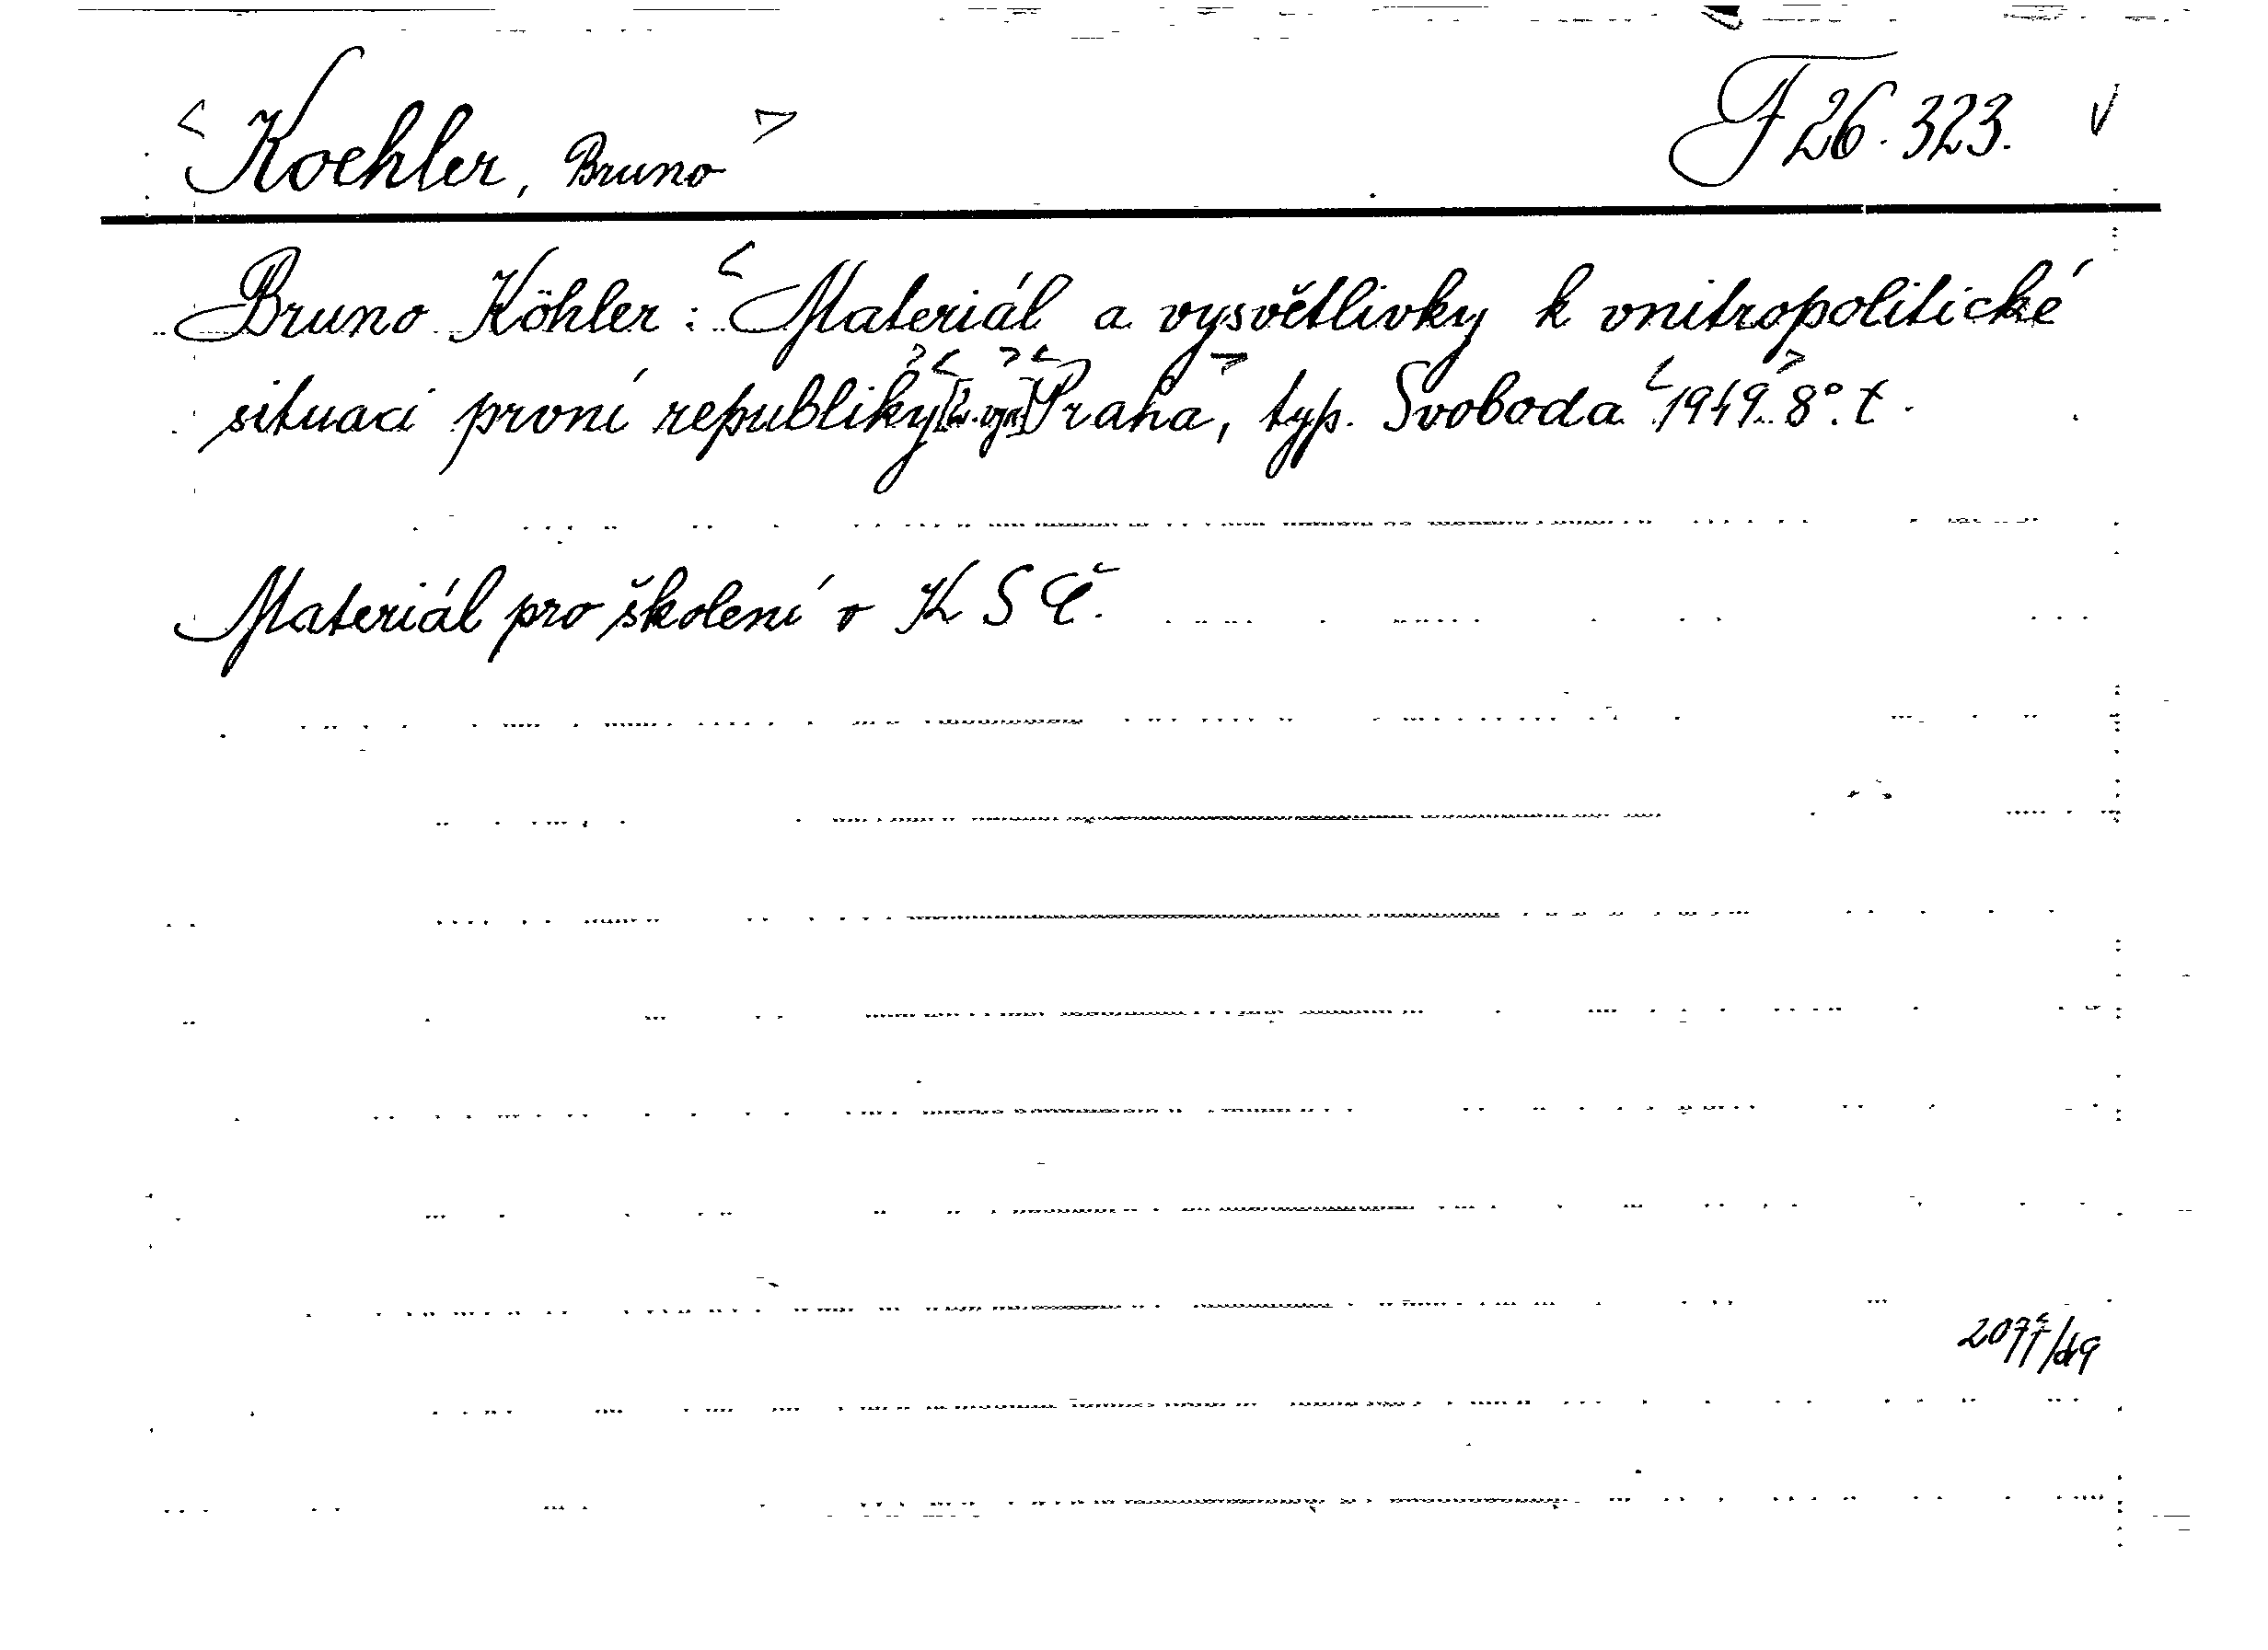 <Koehler, Bruno> F 26.323. v
Bruno Köhler: <Materiál a vysvětlivky k vnitropolitické
situaci první republiky> Praha>, typ. Svoboda <1949> 8°. t.
Materiál pro školení o KSČ.